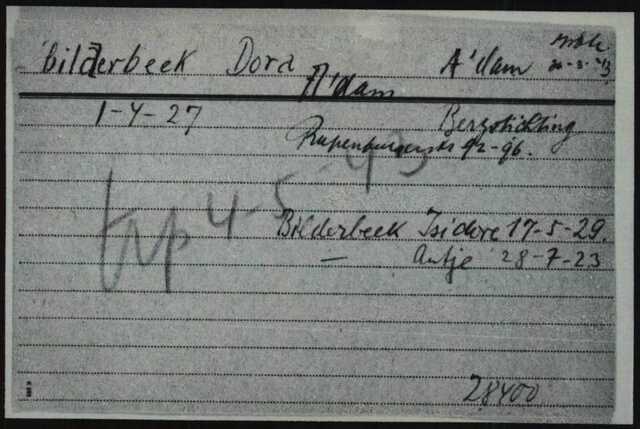 Bilderbeek Dora A'dam
20-3-43
A'dam
1-4-27 Bergstichting
Rapenburgerstr 92-96.
trp 4-5-43
Bilderbeek Isidore 17-5-29.
— Antje 28-7-23
28400